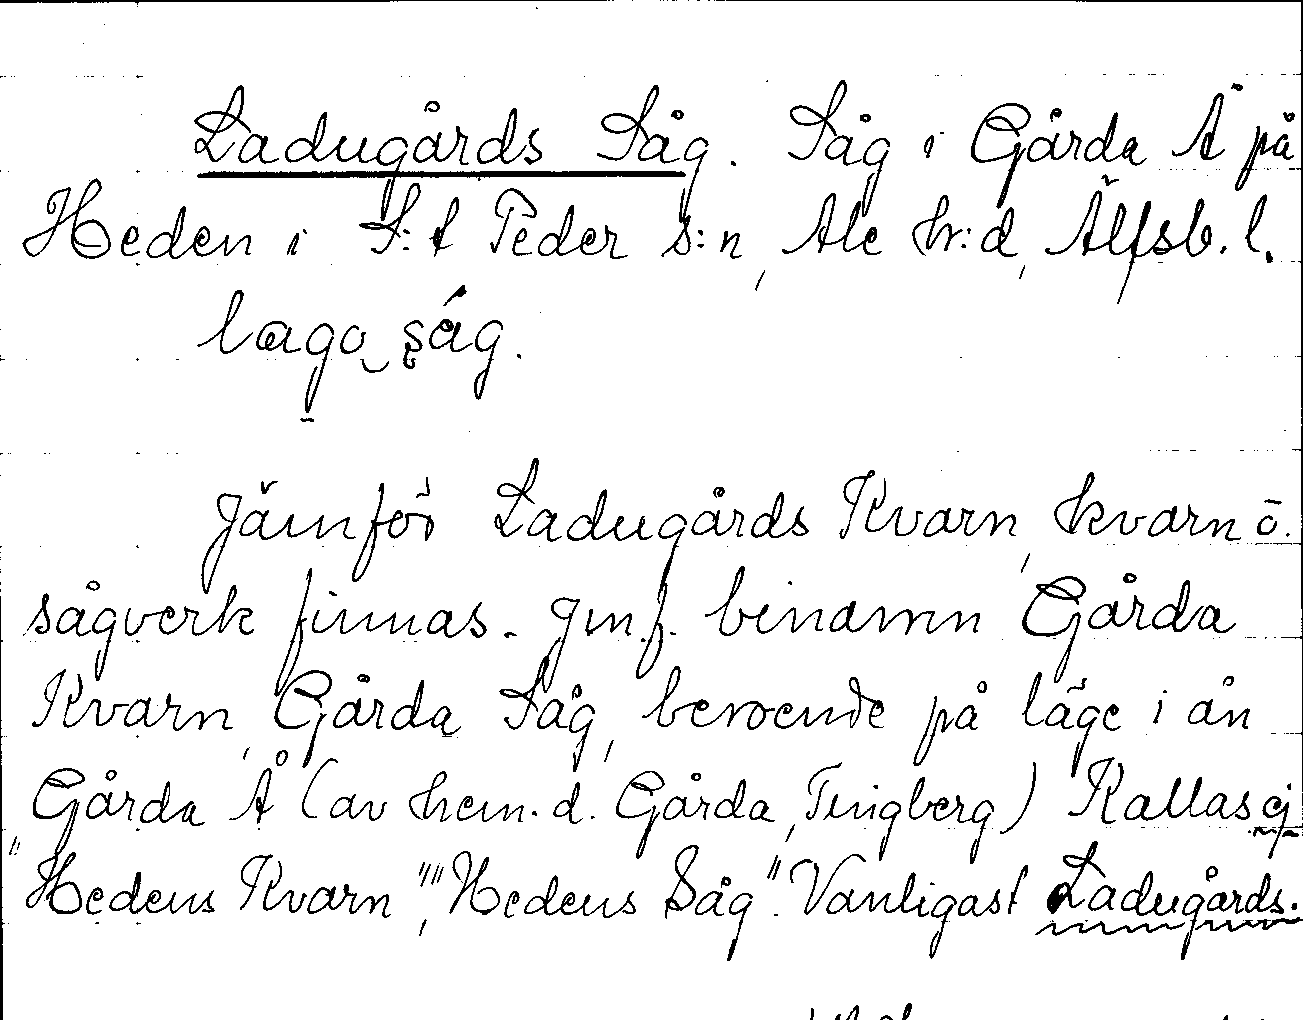 Ladugårds Såg. Såg i Gårda Å på
Heden i S:t Peder s:n, Ale hr:d, Älfsb. l.
lago såg.
Jämför Ladugårds Kvarn, kvarn o.
sågverk finnas. Jmf. binamn Gårda
Kvarn, Gårda Såg, beroende på läge i ån
Gårda Å (av hem.d. Gårda, Tingberg) Kallas ej
"Hedens Kvarn", "Hedens Såg". Vanligast Ladugårds.